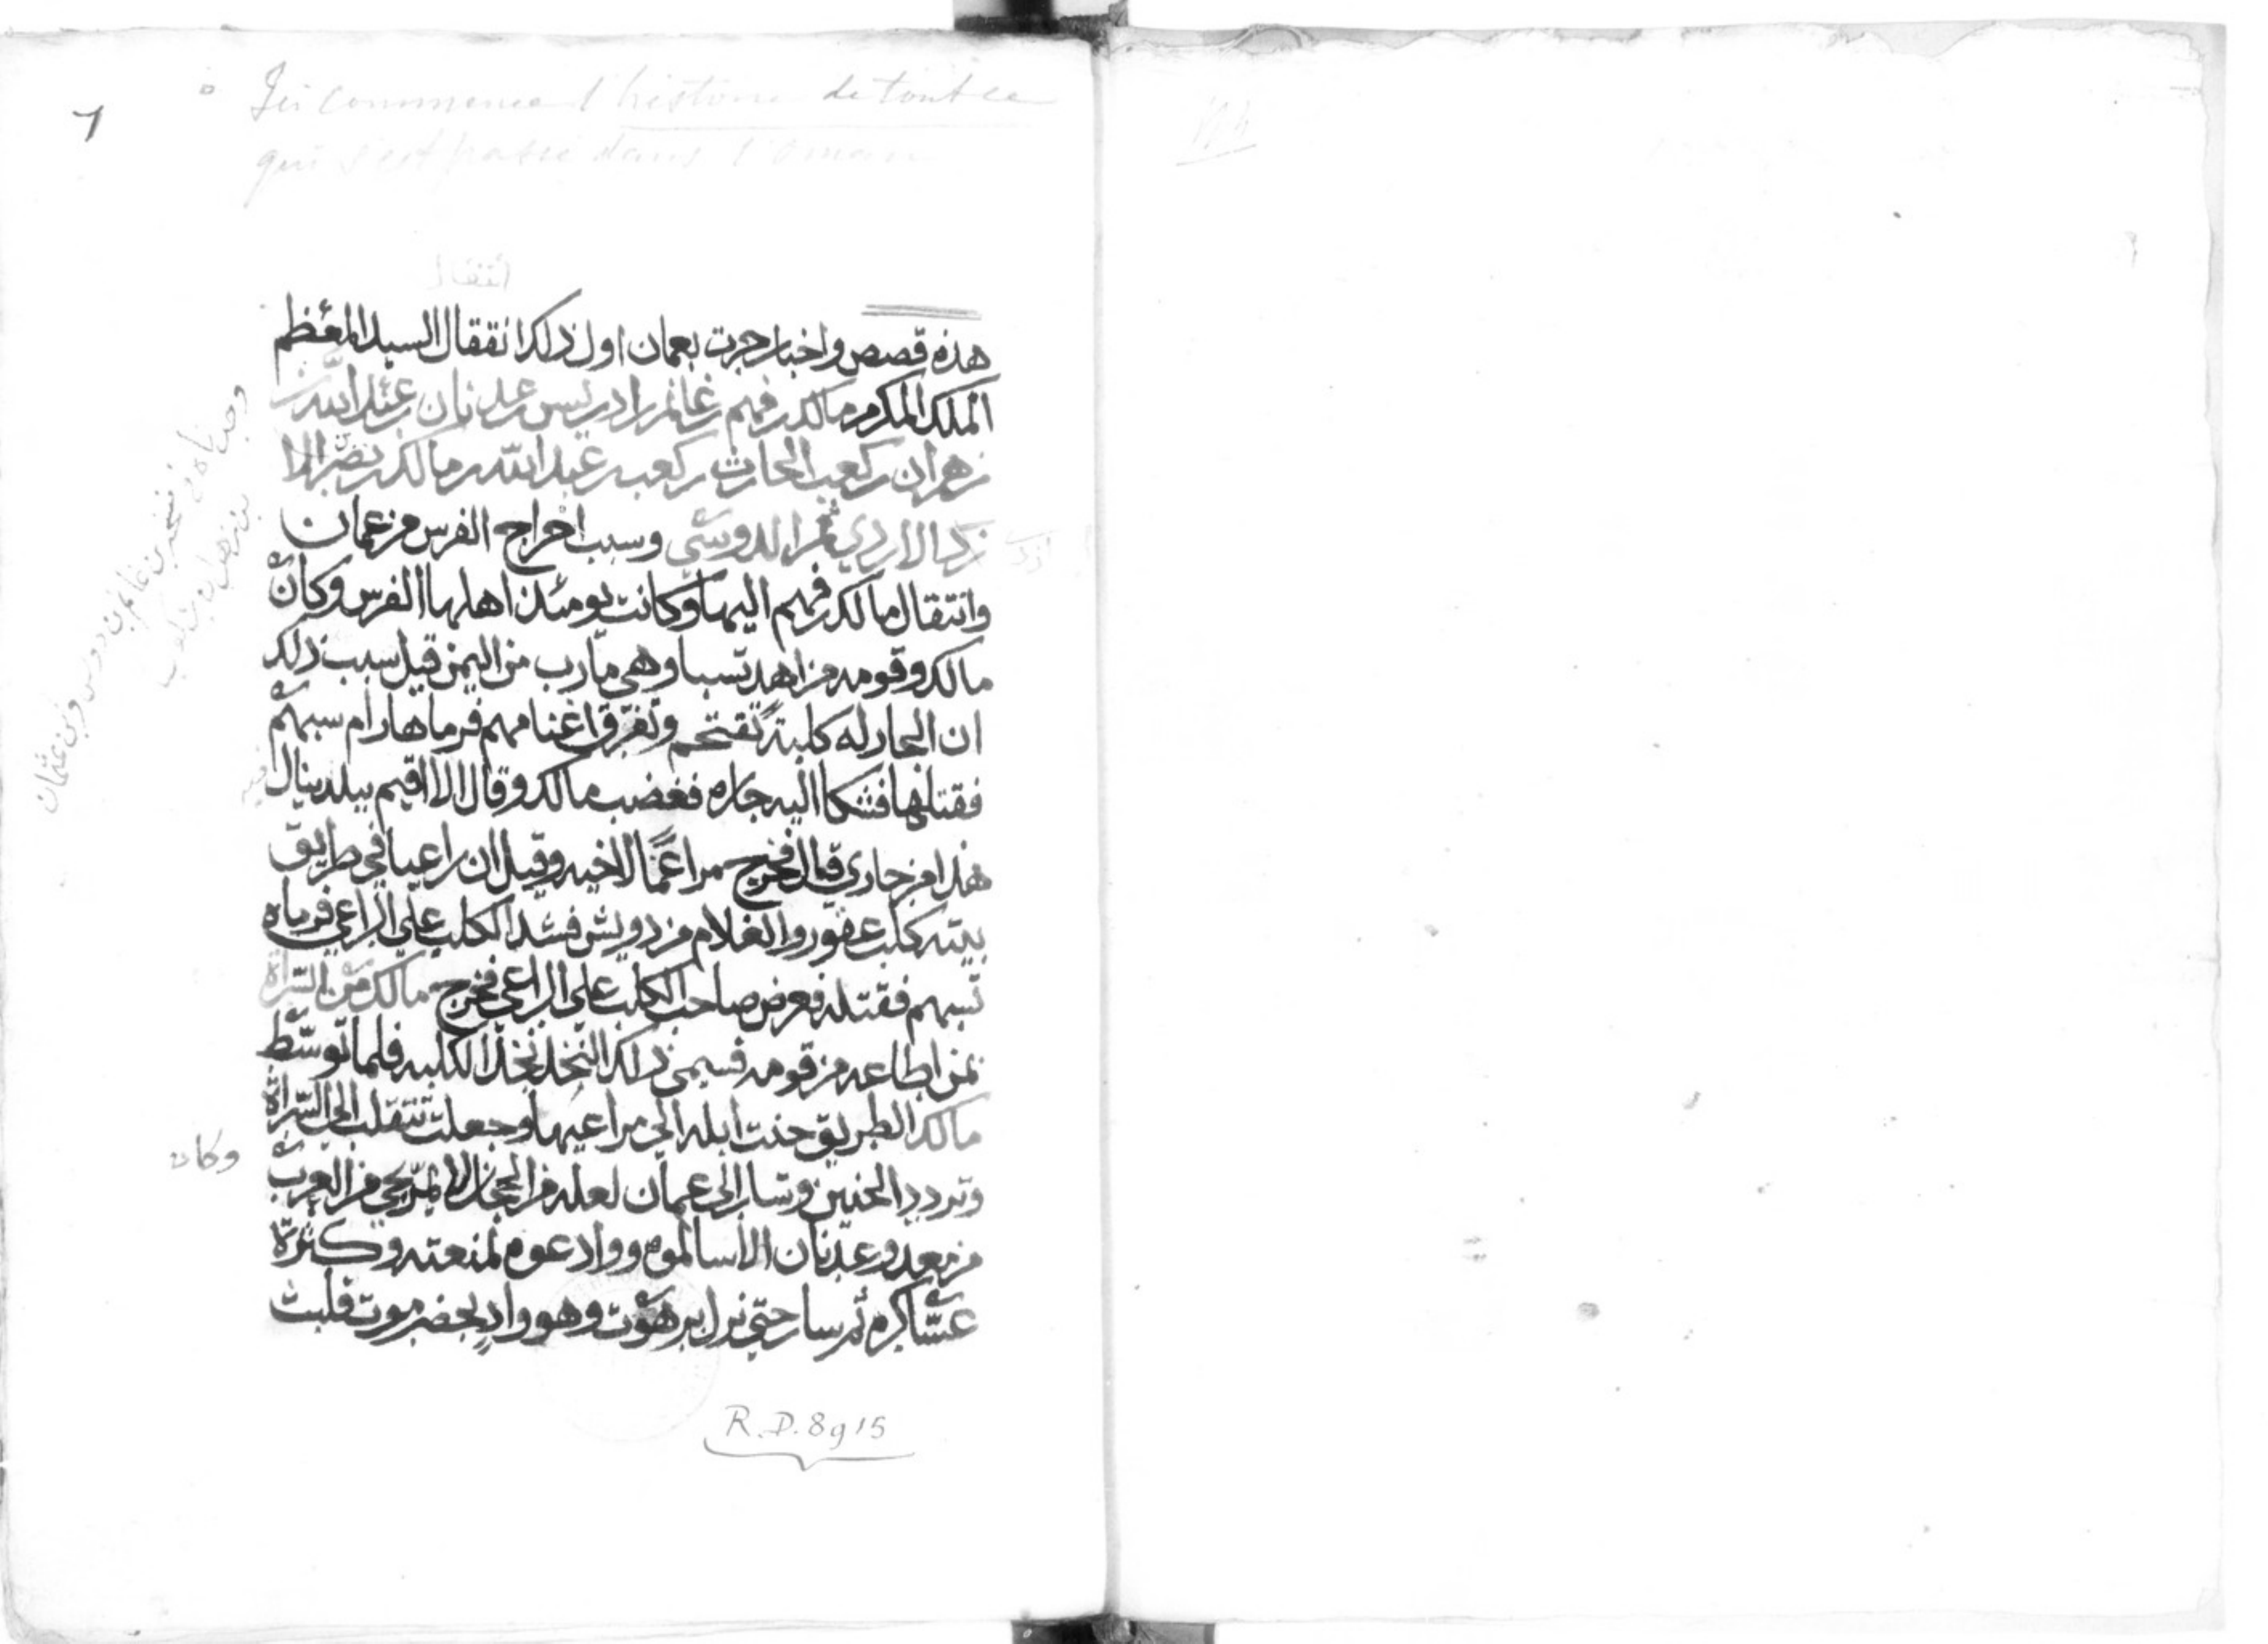 Ici commence l'histoire de tout ce
qui s'est passé dans l'Oman
1
انتقال
هذه قصص واخبار جرت بعمان اول ذلك انتقال السيد المعظم
الملك المكرم مالك بن فهم بن غانم بن ادريس بن عدنان بن عبد الله بن
زهران بن كعب الحارث بن كعب بن عبد الله بن مالك بن نضر الا
زدي الازدي ثم الدوسي وسبب اخراج الفرس من عمان
وانتقال مالك بن فهم اليها وكانت يومئذ اهلها الفرس وكان
مالك وقومه من اهل سبا وهي مأرب من اليمن قيل سبب ذلك
ان الجار له كلبة تقتحم وتفرق اغنامهم فرماها رام بسهم
فقتلها فشكا اليه جاره فغضب مالك وقال لا اقيم ببلد ينال
هذا من جاري قال فخرج مراغما لاخيه وقيل ان راعيا في طريق
بيته كلب عقور والغلام من دويش فشد الكلب على الراعي فرماه
بسهم فقتله فعرض صاحب الكلب على الراعي فخرج مالك من السراة
بمن اطاعه من قومه فسمي ذلك النجد نجد الكلبه فلما توسط
مالك الطريق حنت ابله الى مراعيها وجعلت تتقلب الى السراة
وتردد الحنين وسار الى عمان لعله من الحجاز لا يمر بحي من العرب
من معد وعدنان الا سالموه ووادعوه لمنعته وكثرة
عساكره ثم سار حتى نزل برهوت وهو واد بحضرموت فلبث
وكان
R.D. 8915